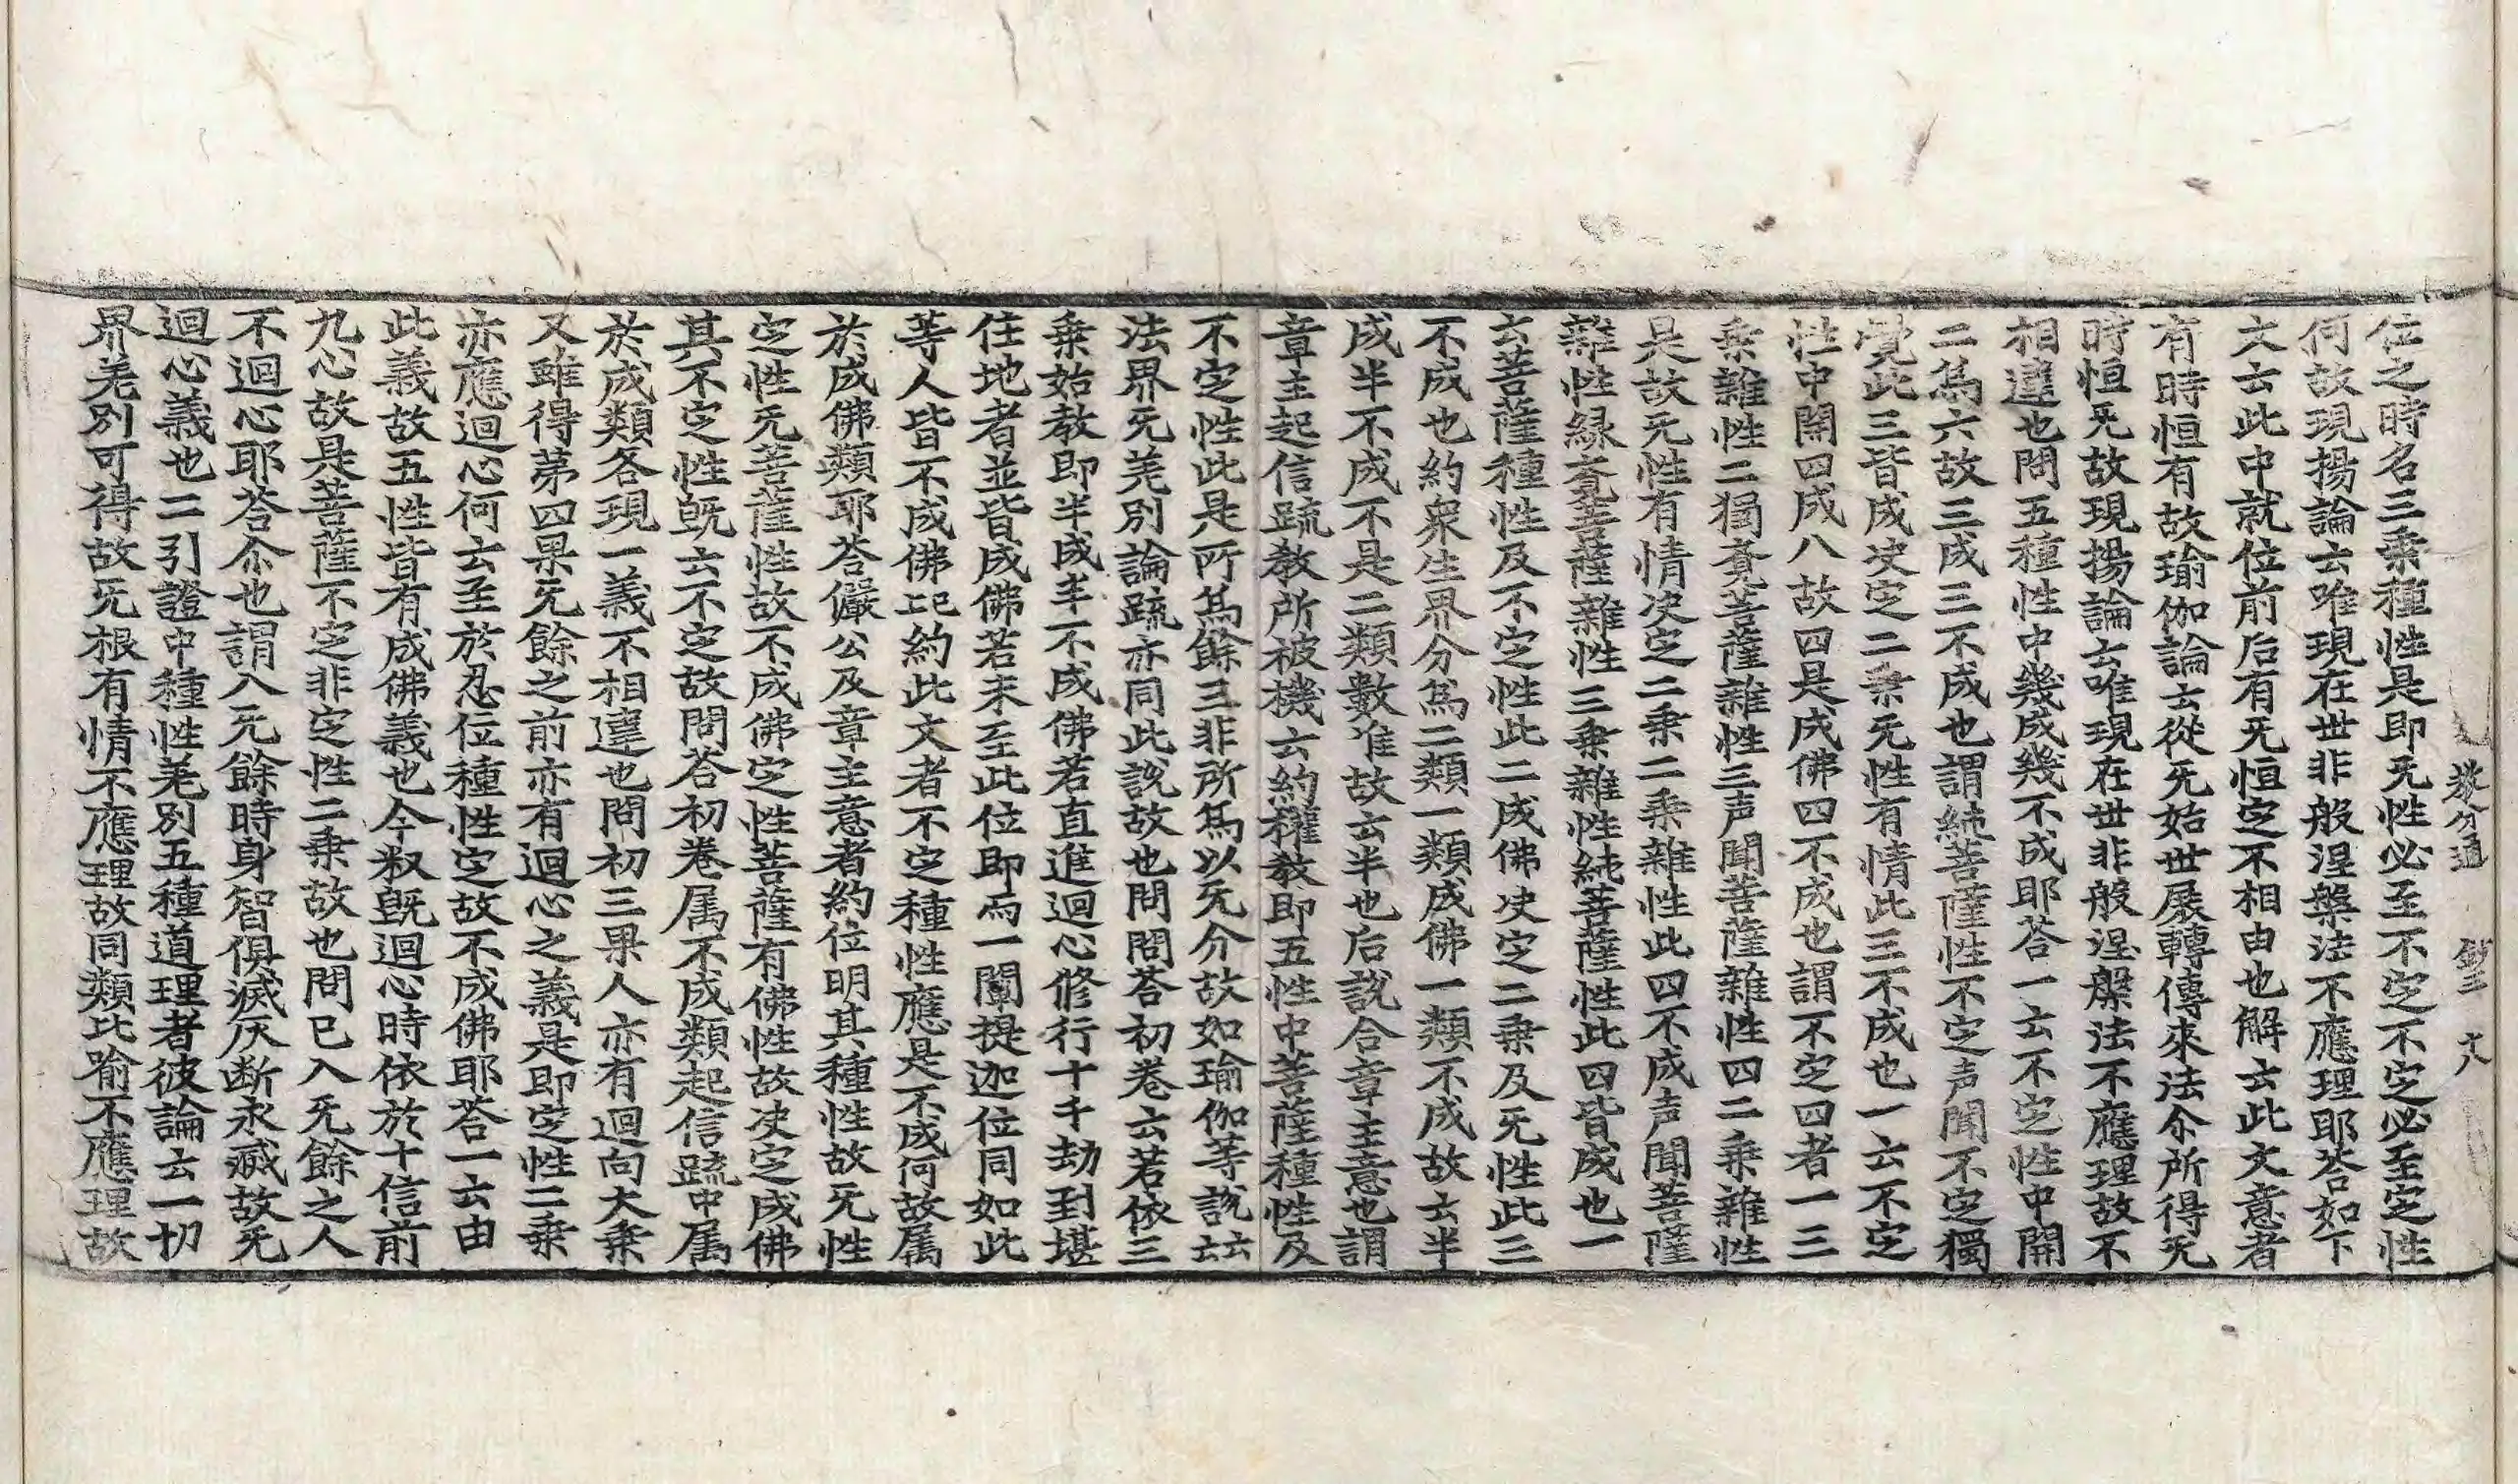 教分通 鈔三 十八
位之時名三乗種性是即旡性必至不定不定必至定性
何故現揚論云唯現在世非般涅槃法不應理耶荅如下
文云此中就位前后有旡恒定不相由也解云此文意者
有時恒有故瑜伽論云從旡始世展轉傳來法尒所得旡
時恒旡故現揚論云唯現在世非般涅槃法不應理故不
相違也問五種性中幾成幾不成耶荅一云不定性中開
二爲六故三成三不成也謂純菩薩性不定声聞不定獨
覺此三皆成決定二乗旡性有情此三不成也一云不定
性中開四成八故四是成佛四不成也謂不定四者一三
乗雜性二獨覔菩薩雜性三声聞菩薩雜性四二乗雜性
是故旡性有情决定二乗二乗雜性此四不成声聞菩薩
雜性緑覔菩薩雜性三乗雜性純菩薩性此四皆成也一
云菩薩種性及不定性此二成佛决定二乗及旡性此三
不成也約衆生界分爲二類一類成佛一類不成故云半
成半不成不是二類數准故云半也后說合章主意也謂
章主起信䟽教所被機云約權教即五性中菩薩種性及
不定性此是所爲餘三非所爲以旡分故如瑜伽等說云云
法界旡差別論䟽亦同此說故也問問荅初卷云若依三
乗始教即半成半不成佛若直進迴心修行十千劫到堪
住地者並皆成佛若未至此位即与一闡提迦位同如此
等人皆不成佛記約此文者不定種性應是不成何故属
於成佛類耶荅儼公及章主意者約位明其種性故旡性
定性旡菩薩性故不成佛定性菩薩有佛性故决定成佛
其不定性旣云不定故問荅初卷属不成類起信䟽中属
於成類各現一義不相違也問初三果人亦有迴向大乗
又雖得苐四果旡餘之前亦有迴心之義是即定性二乗
亦應迴心何云至於忍位種性定故不成佛耶荅一云由
此義故五性皆有成佛義也今敉旣迴心時依於十信前
九心故是菩薩不定非定性二乗故也問已入旡餘之人
不迴心耶荅尒也謂入旡餘時身智俱滅灰断永滅故旡
迴心義也二引證中種性差別五種道理者彼論云一切
界差別可得故旡根有情不應理故同類比喻不應理故